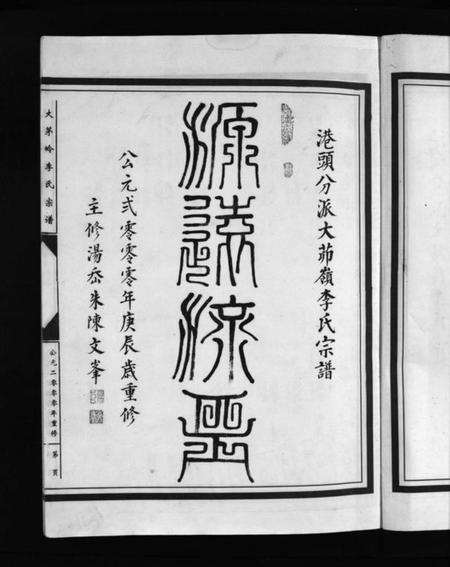 港頭分派大茆嶺李氏宗譜
源遠流長
公元弍零零零年庚辰歲重修
主修湯岙朱陳文峯
大茅岭李氏宗谱
公元二零零零年重修
第 页